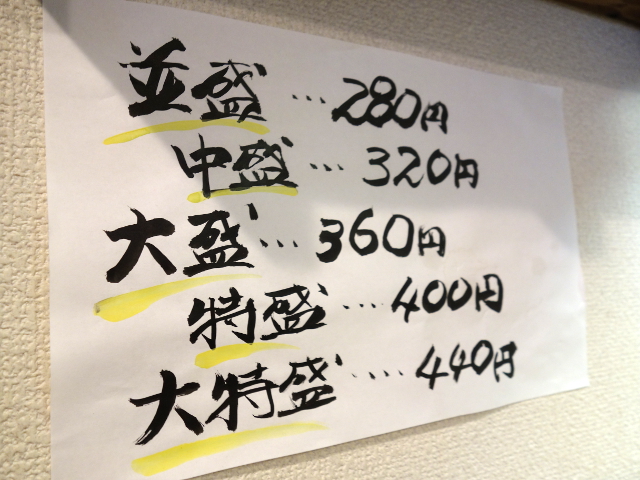 並盛…280円
中盛…320円
大盛…360円
特盛....400円
大特盛....440円